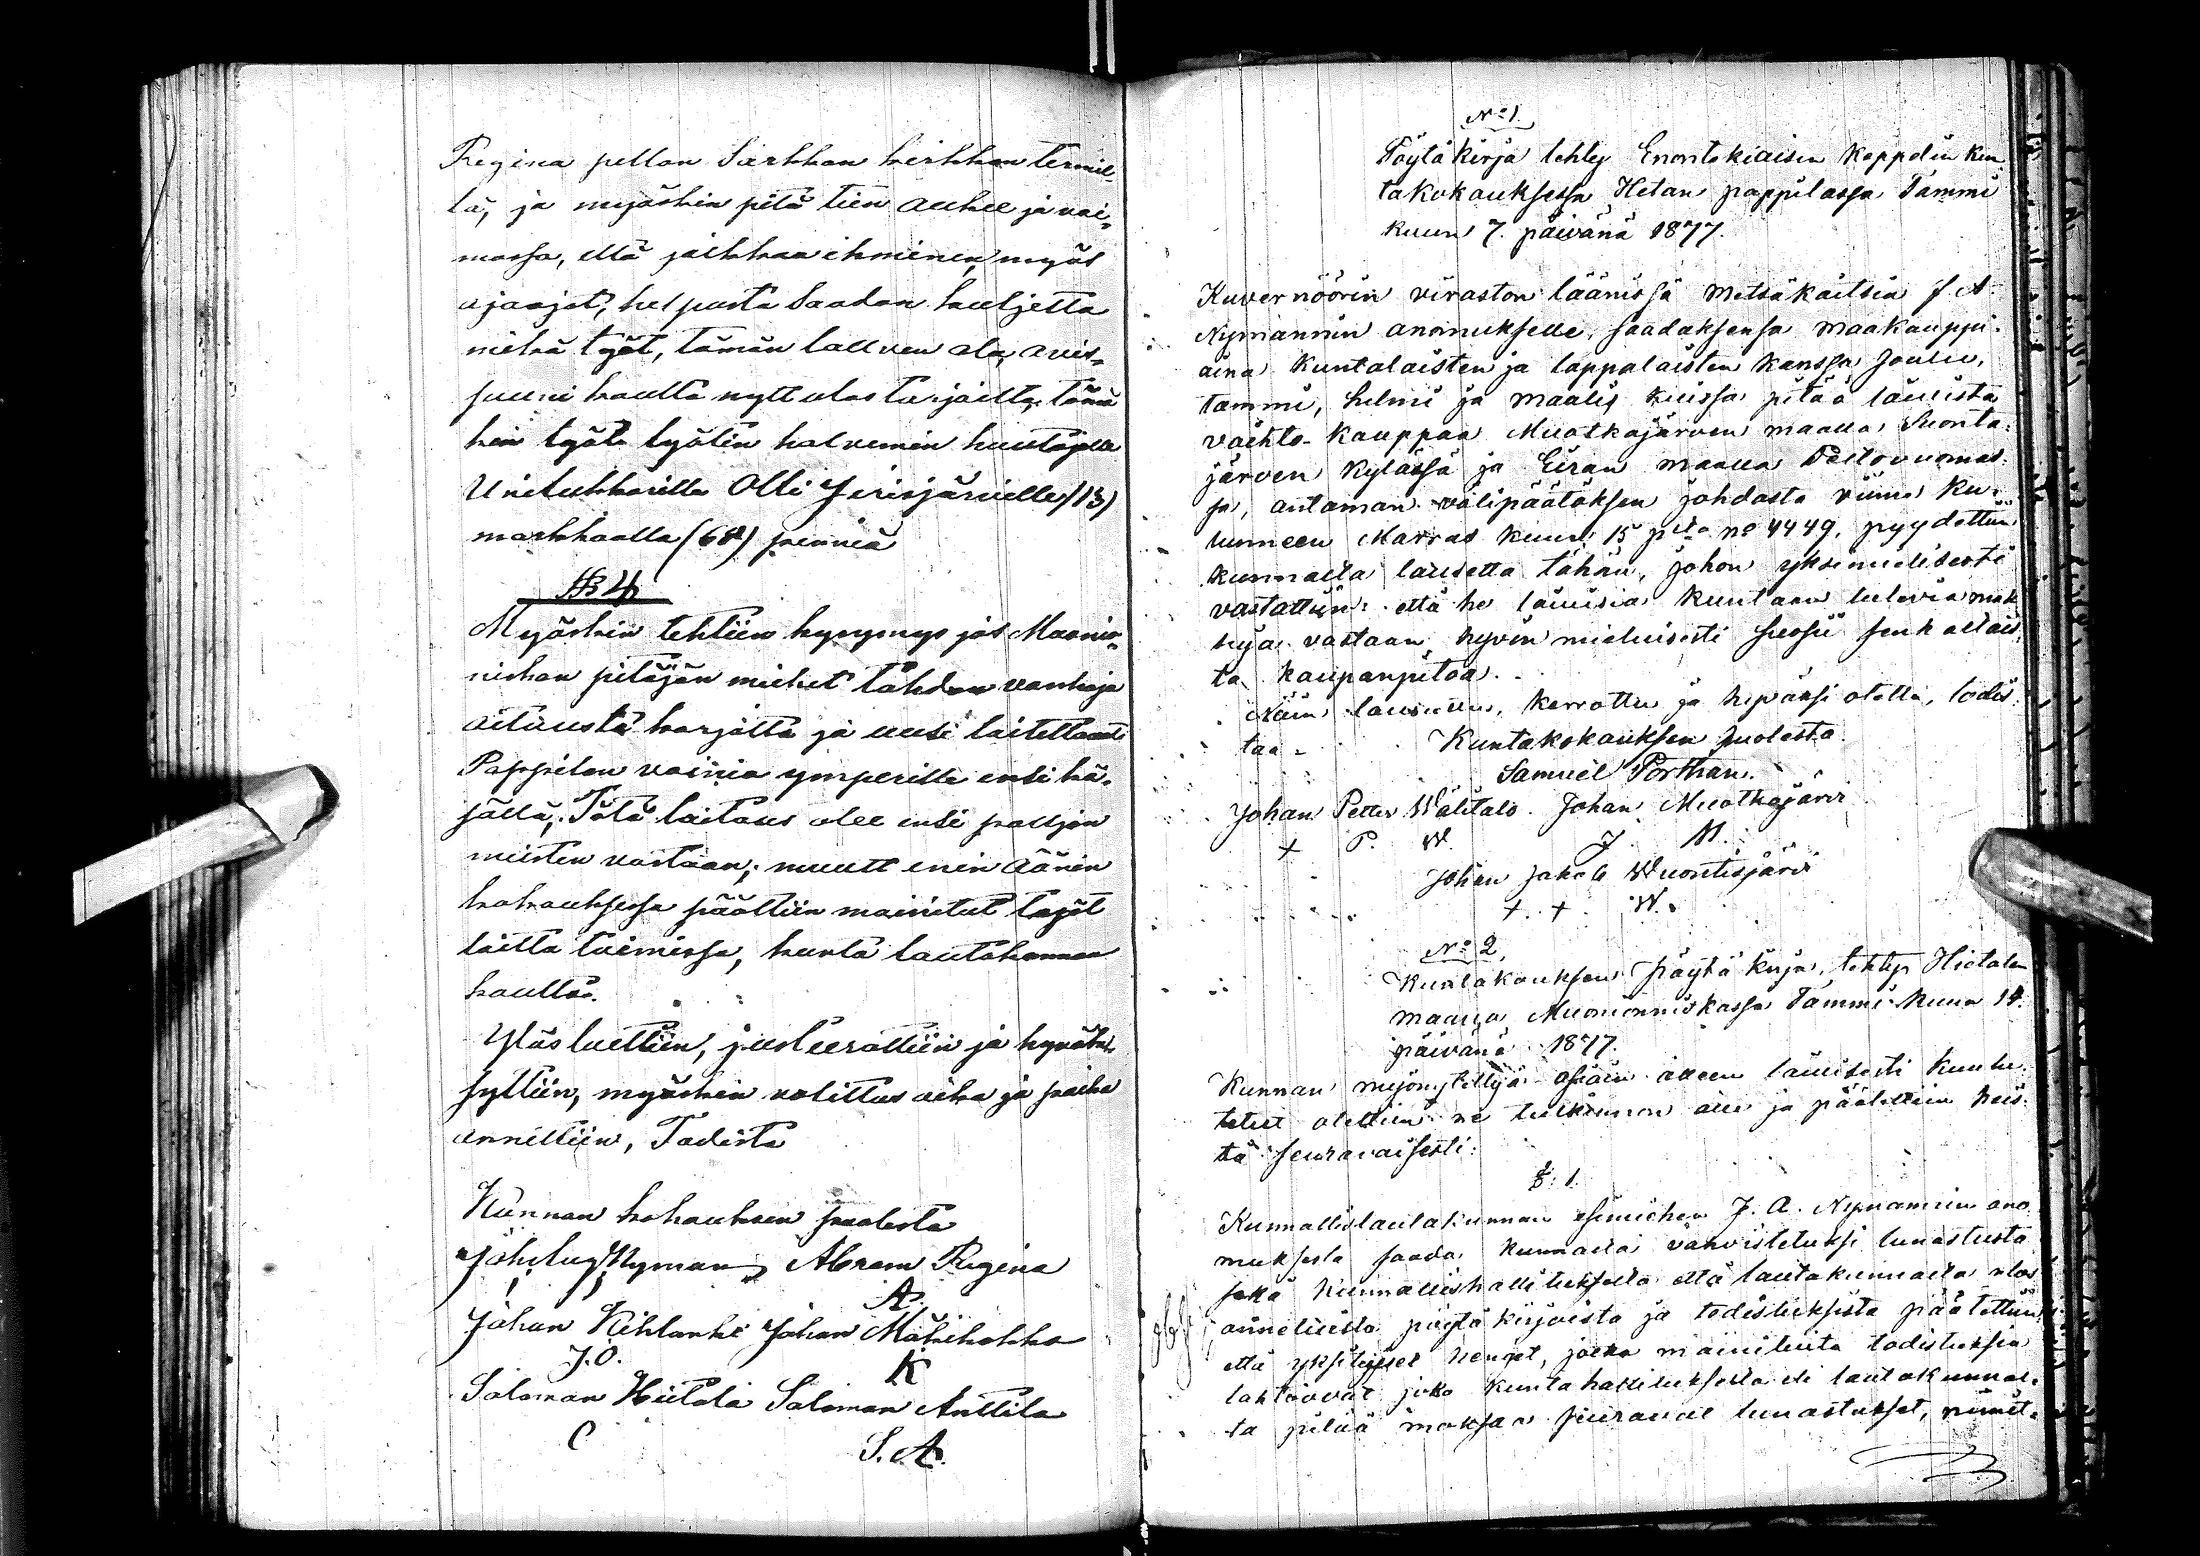 Regina pellon Sarkkan kirkkon termil-
lä, ja myöskin pitä tien aukee ja voi-
massa, että jalkkaa ihminen, myös
ajaajat, helposta Saadan kuljetta
mikä työt, tämän tallven ala, avis-
suuni kautta nytt ulos tarjolta, tämä
kin työt työtin halvemin huutajalle
Unitukkarilla Olli Jerisjärvielle (13)
markkaalla (68) penniä
§ 4
Myöskin tehtiin kysymys jos Muonio-
niskan pitäjän miehet tahdon vanhoja
aituusta korjatta ja uusi laitettaan
Pappilan vainia ymperille ensi kä-
sällä, Tätä laitaus olee ensi palljon
meisten vastaan; muutt enin äänin
kokouksessa päättiin mainitut tyjöt
laitta toimissa, kunta lautakunnan
kautta.
Ylösluettiin, justeerattiin ja hyväk-
syttiin, myöskin valittus aika ja paika
annettiin, Todista
Kunnan kokouksen puolesta
Nyman Abram Regina
A.
Johan Kihlanki Johan Mäkikokko
J.O. K
Saloman Hietala Saloman Anttila
C S.A.
No 1.
Pöytäkirja tehty Enontekiäisen kappelin kun
takokouksessa Hetan pappilassa Tammi
kuun 7. päivänä 1877.
Kuvernöörin viraston läänissä metsäkäitsiä J. A.
Nymannin anomukselle, saadaksensa maakauppi-
aina kuntalaisten ja lappalaisten kanssa Joulu,
tammi, helmi ja maalis kuissa pitää lauista
vaihto-kauppaa Muotkajärven maalla Suonta-
järven kylässä ja Eiran maalla Peltovuomas-
sa, antaman välipäätöksen johdosta viime ku-
lunneen Marras kuun 15 p:ltä no 4449, pyydettiin
kunnalta lausetta tähän, johon yksimielisesti
vastattiin: että he lauisia kuntaan tulevia mak
suja vastaan, hyvin mieluisesti suosii senkaltais-
ta kaupanpitoa.
Näin lausutun, kerrottu ja hyväksi otettu, todis-
taa - Kuntakokouksen puolesta.
Samuel Porthan.
Johan Petter Wälitalo. Johan Muotkajärvi
+ P. W. J. M.
Johan Jakob Wuontisjärvi
+ + W.
No 2.
Kuntakouksen Pöytäkirja, tehty Hietalan
maalla Muonionniskassa Tammi-kuun 14.
päivänä 1877.
Kunnan myönytettyjä asiain alleen lauiisesti kuulu-
tetut otettiin ne tutkinnon alle ja päätettiin heis-
tä seuravaisesti:
§. 1.
Kunnallislautakunnan esimiehen J. A. Nymannin ano
muksesta saada kunnalta vahvistetuksi lunastusta
sekä kunnallishallituksesta että lautakunnalta ulos
annetuista pöytäkirjoista ja todistuksista päätettiin
että yksityiset henget, jotka mainituita todistuksia
tahtoovat joko kuntahallituksesta eli lautakunnas-
ta pitää maksaa seuraavat lunastukset, nimit-